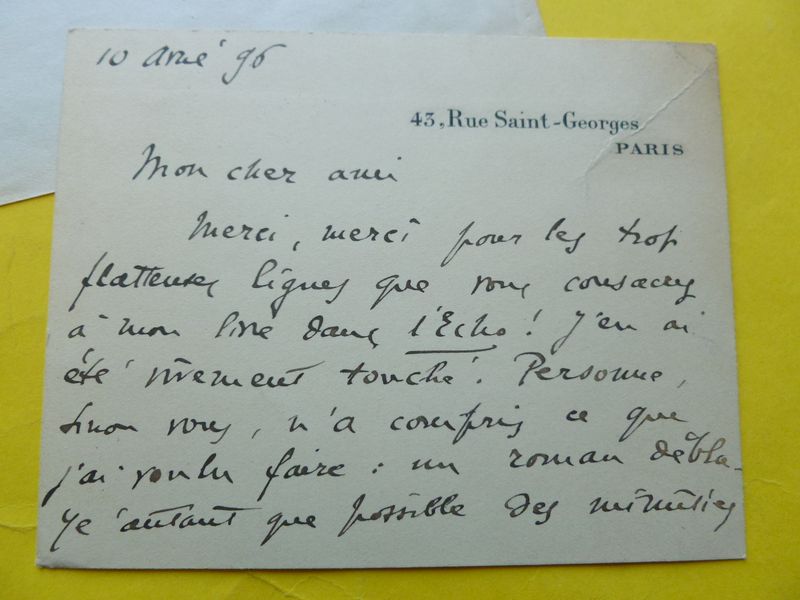 10 Avril 96
43, Rue Saint-Georges
PARIS
Mon cher ami
Merci, merci pour les trop
flatteuses lignes que vous consacrez
à mon livre dans l'Echo ! J'en ai
été vivement touché. Personne,
sinon vous, n'a compris ce que
j'ai voulu faire : un roman débla-
yé autant que possible des minuties